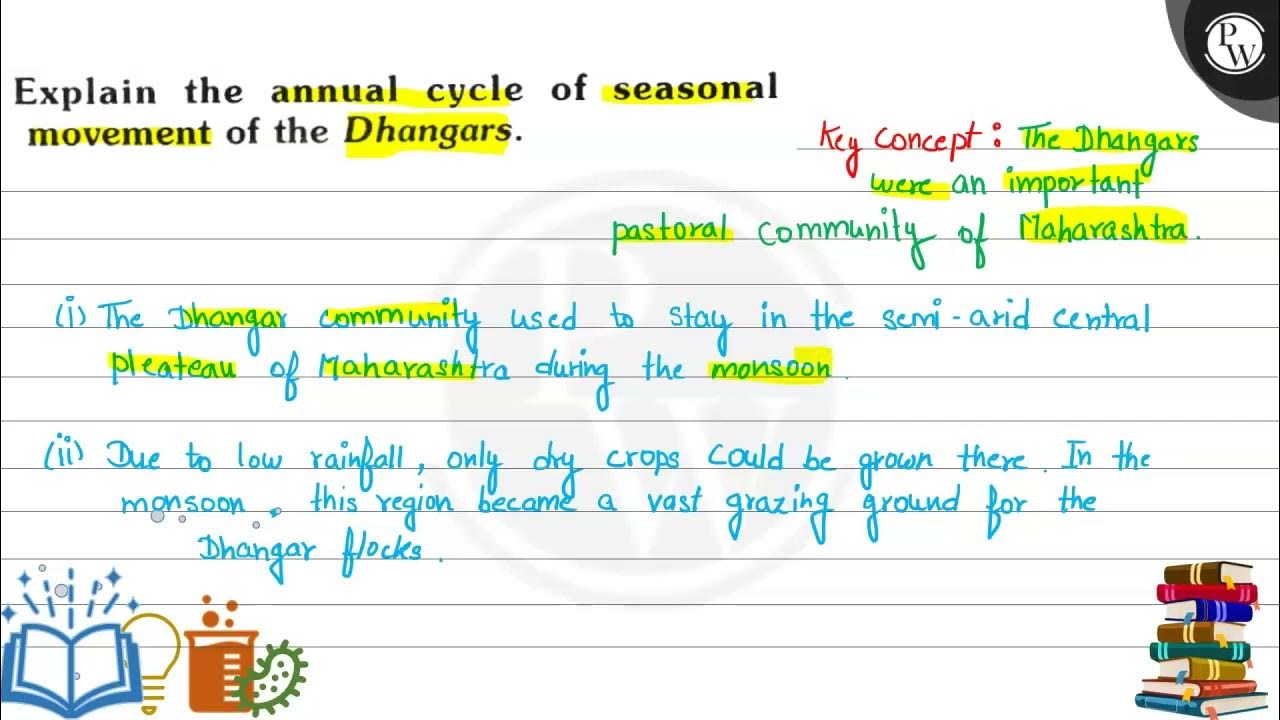 PW
Explain the annual cycle of seasonal
movement of the Dhangars.
Key Concept : The Dhangars
were an important
pastoral community of Maharashtra.
(i) The Dhangar community used to stay in the semi-arid central
pleateau of Maharashtra during the monsoon.
(ii) Due to low rainfall, only dry crops could be grown there. In the
monsoon, this region became a vast grazing ground for the
Dhangar flocks.